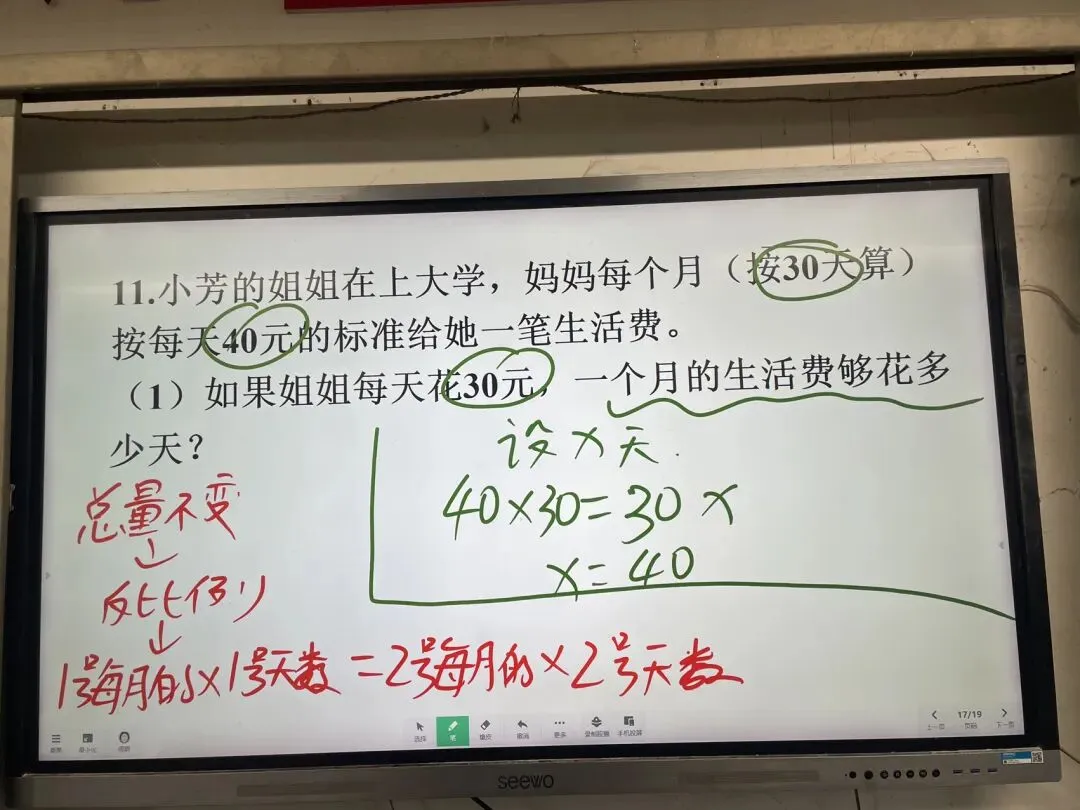 11.小芳的姐姐在上大学，妈妈每个月（按30天算）
按每天40元的标准给她一笔生活费。
（1）如果姐姐每天花30元，一个月的生活费够花多
少天？
设x天.
40×30=30x
x=40
总量不变
↓
反比例
↓
1号每月的×1号天数=2号每月的×2号天数
选择
笔
橡皮
撤消
更多
手机投屏
上一页
17/19
页码
下一页
seewo